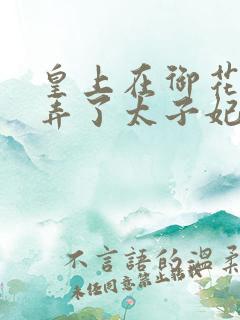 皇上在御花
弄了太子妃
不言語的溫柔
未任同意禁止轉載